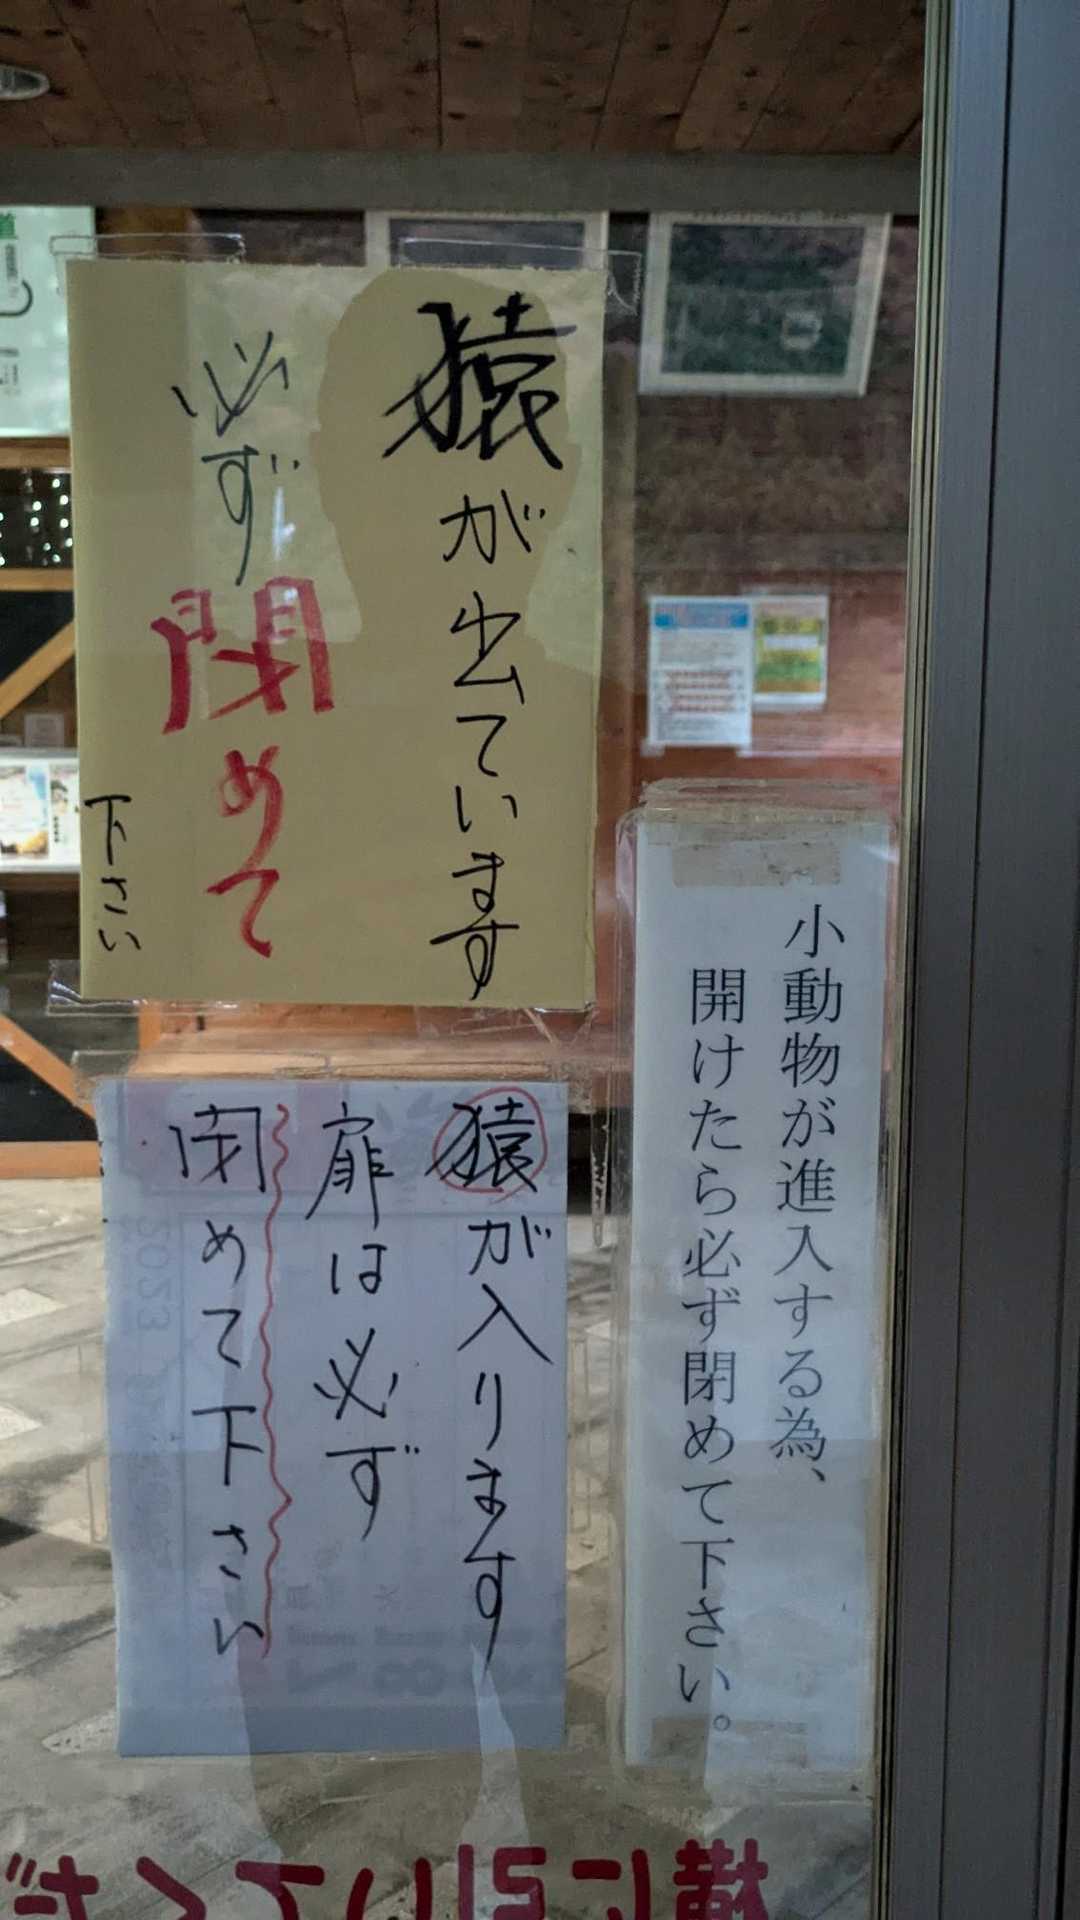 猿が出ています
必ず閉めて
下さい
小動物が進入する為、
開けたら必ず閉めて下さい。
猿が入ります
扉は必ず
閉めて下さい
横に引いてくだ
2023